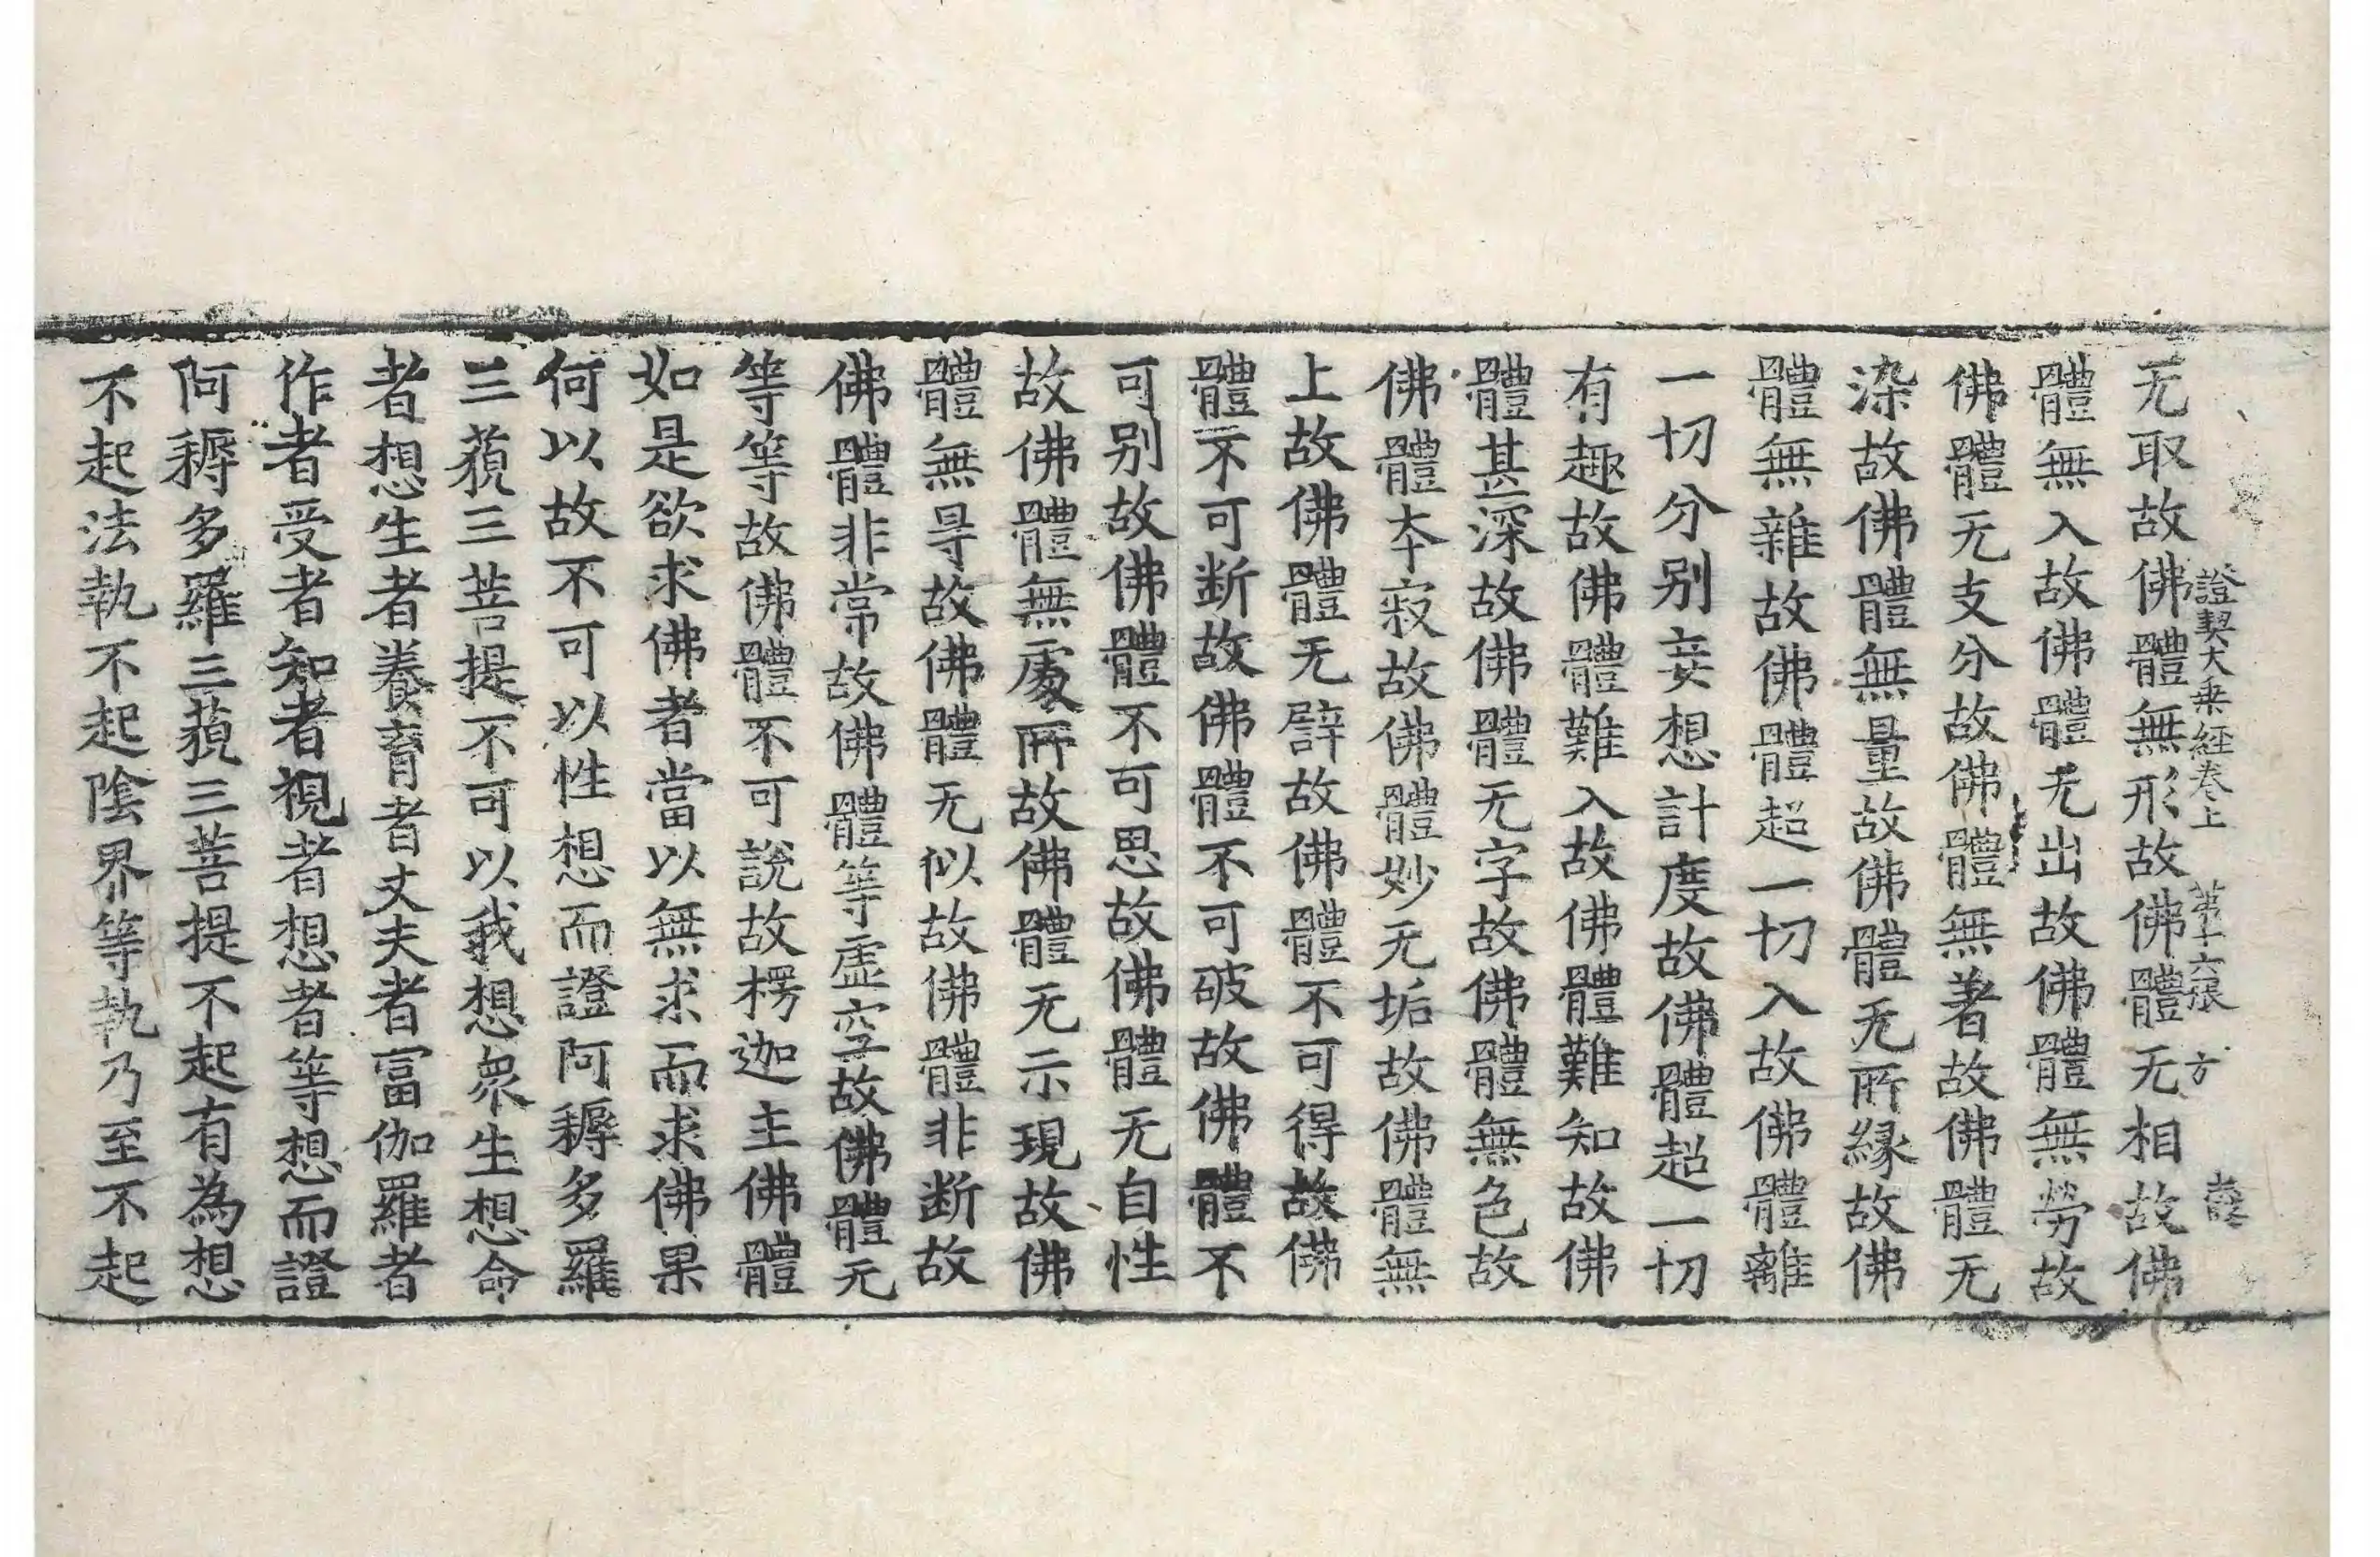 證契大乗経卷上 第十六張 方
无取故佛體無形故佛體无相故佛
體無入故佛體无出故佛體無勞故
佛體无支分故佛體無著故佛體无
染故佛體無量故佛體无所縁故佛
體無雜故佛體超一切入故佛體離
一切分别妄想計度故佛體超一切
有趣故佛體難入故佛體難知故佛
體甚深故佛體无字故佛體無色故
佛體夲寂故佛體妙无垢故佛體無
上故佛體无譬故佛體不可得故佛
體不可断故佛體不可破故佛體不
可别故佛體不可思故佛體无自性
故佛體無處所故佛體无示現故佛
體無㝵故佛體无似故佛體非断故
佛體非常故佛體等虛空故佛體无
等等故佛體不可說故楞迦主佛體
如是欲求佛者當以無求而求佛果
何以故不可以性想而證阿耨多羅
三藐三菩提不可以我想衆生想命
者想生者養育者丈夫者富伽羅者
作者受者知者視者想者等想而證
阿耨多羅三藐三菩提不起有為想
不起法執不起陰界等執乃至不起